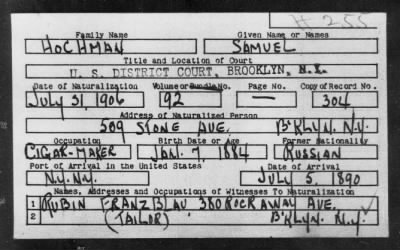 # 255
Family Name Given Name or Names
HOCHMAN SAMUEL
Title and Location of Court
U. S. DISTRICT COURT, BROOKLYN, N.Y.
Date of Naturalization Volume or Bundle No. Page No. Copy of Record No.
JULY 31, 1906 92 — 304
Address of Naturalized Person
509 STONE AVE. B'KLYN. N.Y.
Occupation Birth Date or Age Former Nationality
CIGAR-MAKER JAN. 7, 1884 RUSSIAN
Port of Arrival in the United States Date of Arrival
N.Y. N.Y. JULY 5, 1890
Names, Addresses and Occupations of Witnesses To Naturalization
1 RUBIN FRANZBLAU 380 ROCKAWAY AVE.
2 (TAILOR) B'KLYN. N.Y.